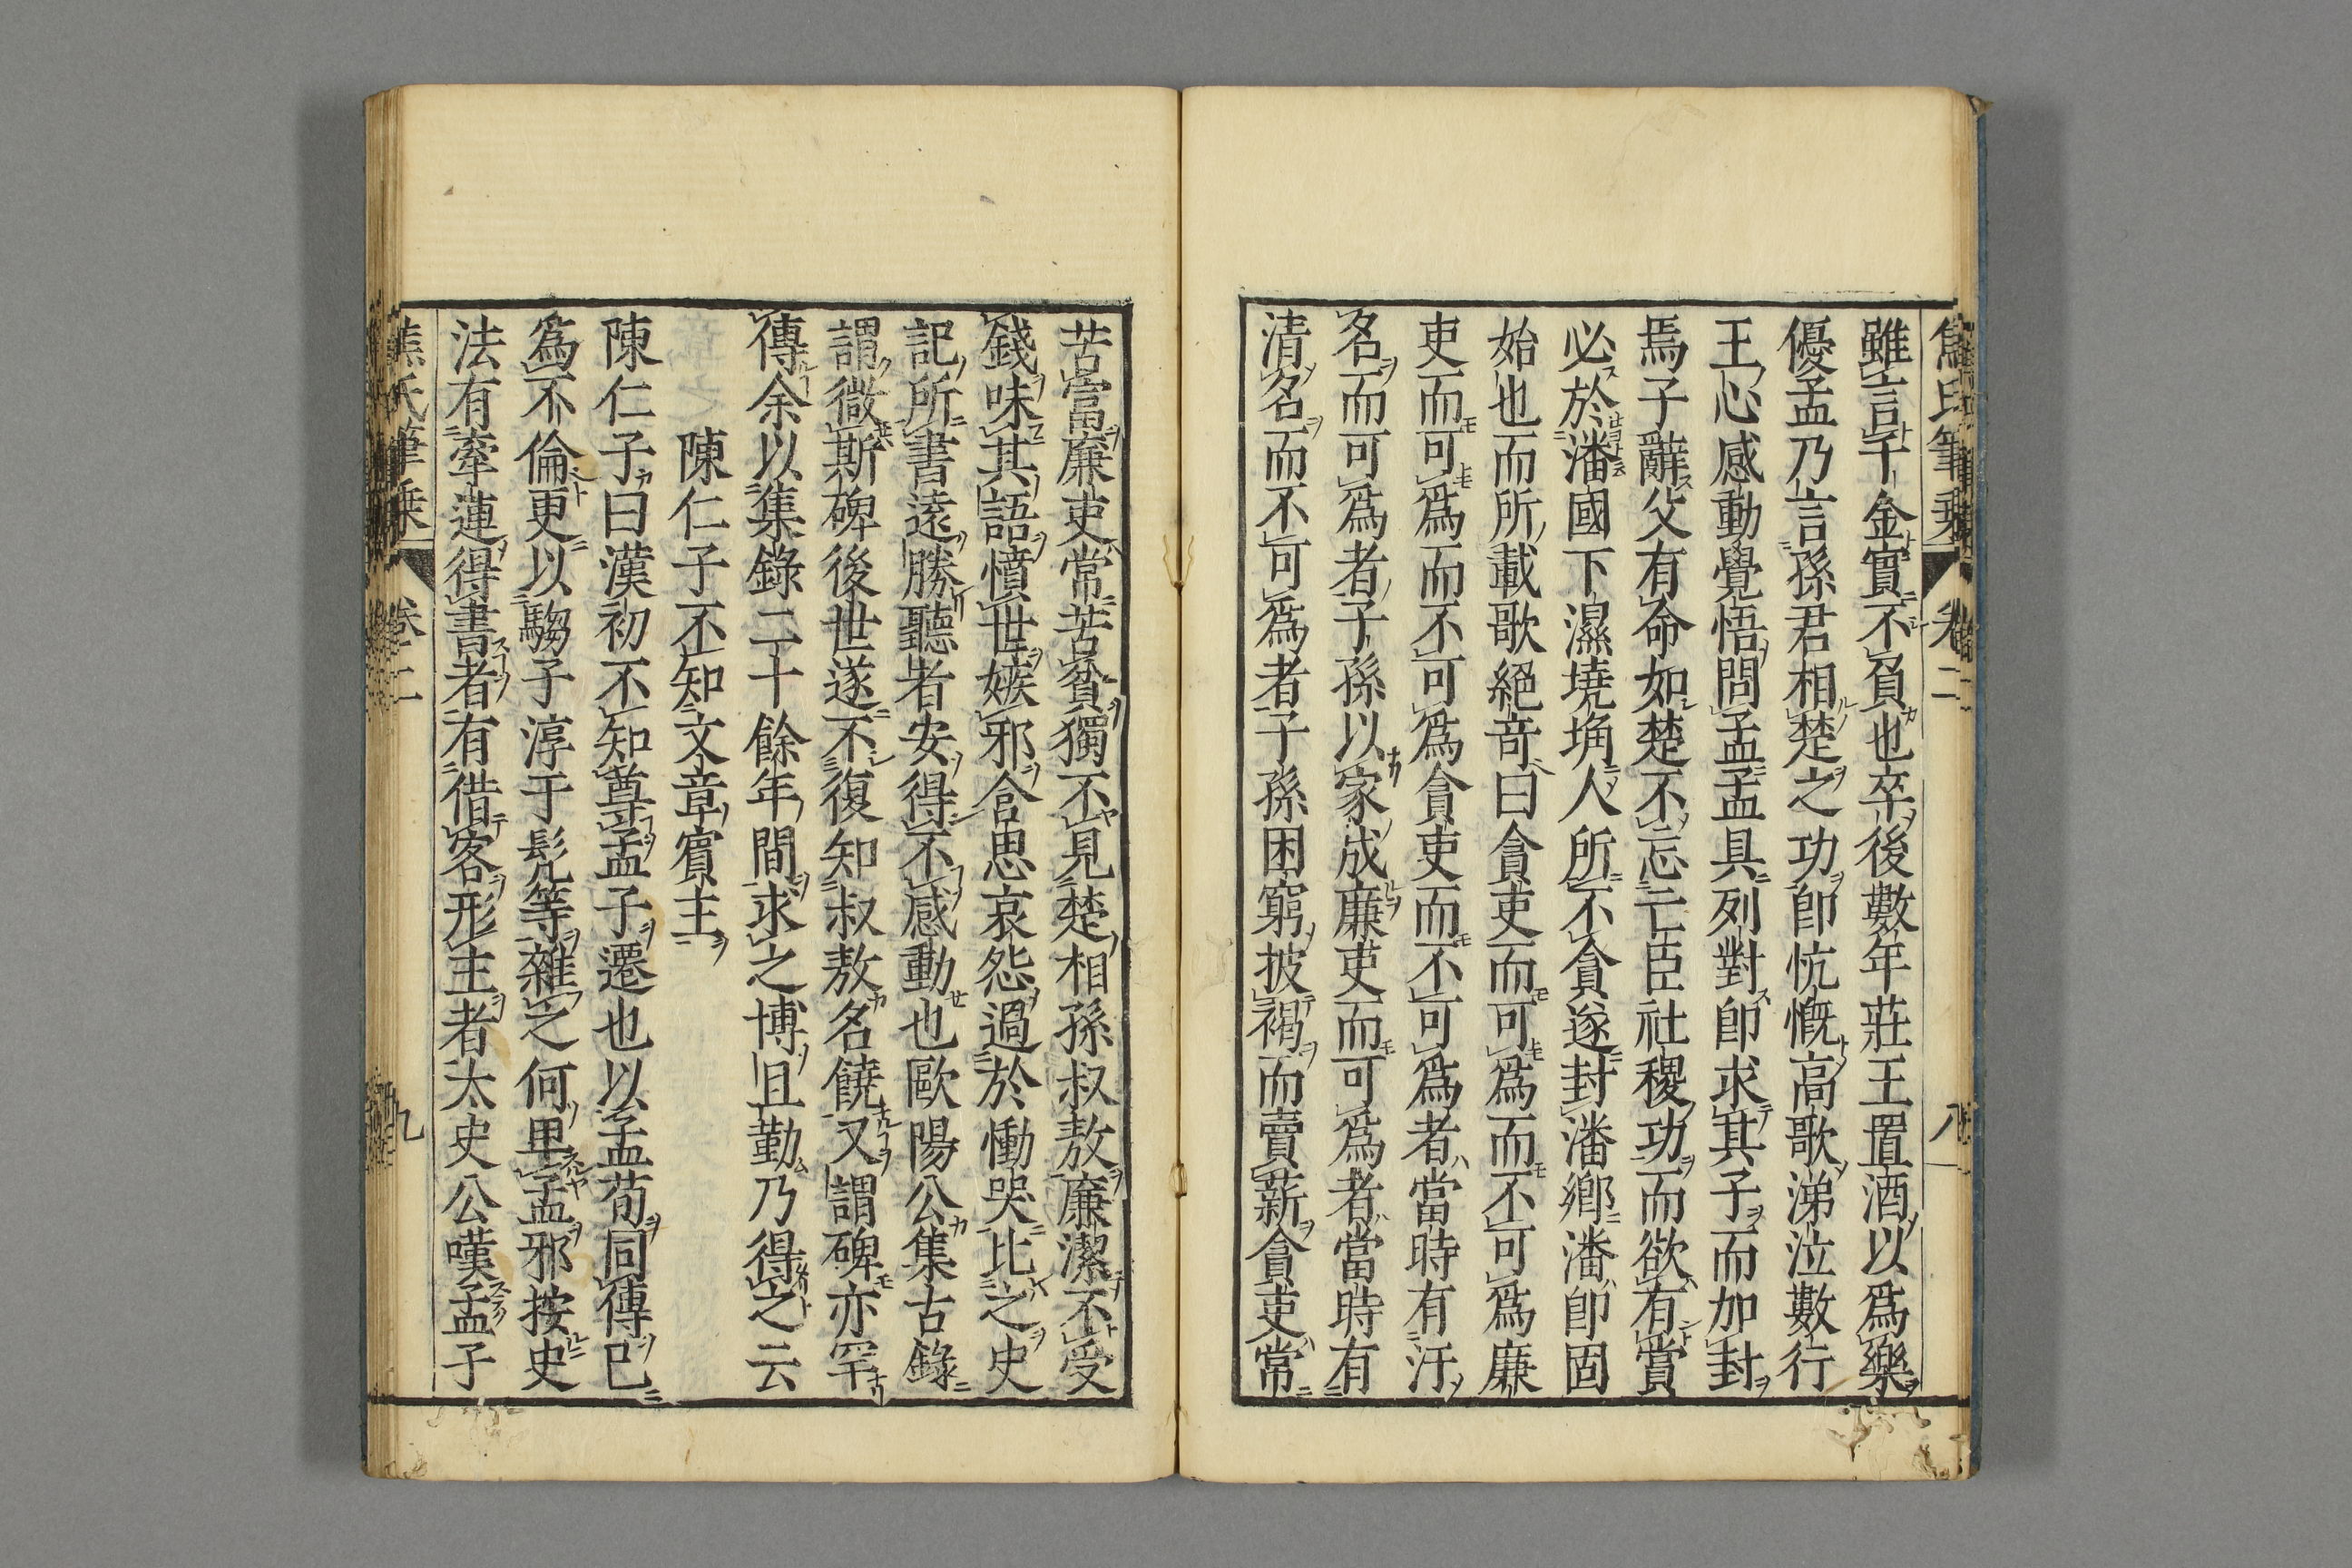 焦氏筆乗 卷二 八
雖言千金實不負也卒後數年莊王置酒以爲樂
優孟乃言孫君相楚之功卽忼慨高歌涕泣數行
王心感動覺悟問孟孟具列對卽求其子而加封
焉子辭父有命如楚不忘亡臣社稷功而欲有賞
必於潘國下濕墝埆人所不貪遂封潘鄉潘卽固
始也而所載歌絕奇曰貪吏而可爲而不可爲廉
吏而可爲而不可爲貪吏而不可爲者當時有汙
名而可爲者子孫以家成廉吏而可爲者當時有
清名而不可爲者子孫困窮披褐而賣薪貪吏常
苦富廉吏常苦貧獨不見楚相孫叔敖廉潔不受
錢味其語憤世嫉邪含思哀怨過於慟哭比之史
記所書遠勝聽者安得不感動也歐陽公集古錄
謂微斯碑後世遂不復知叔敖名饒又謂碑亦罕
傳余以集錄二十餘年間求之博且勤乃得之云
陳仁子不知文章賓主
陳仁子曰漢初不知尊孟子遷也以孟荀同傳已
爲不倫更以騶子淳于髠等雜之何卑孟邪按史
法有牽連得書者有借客形主者太史公嘆孟子
焦氏筆乗 卷二 九